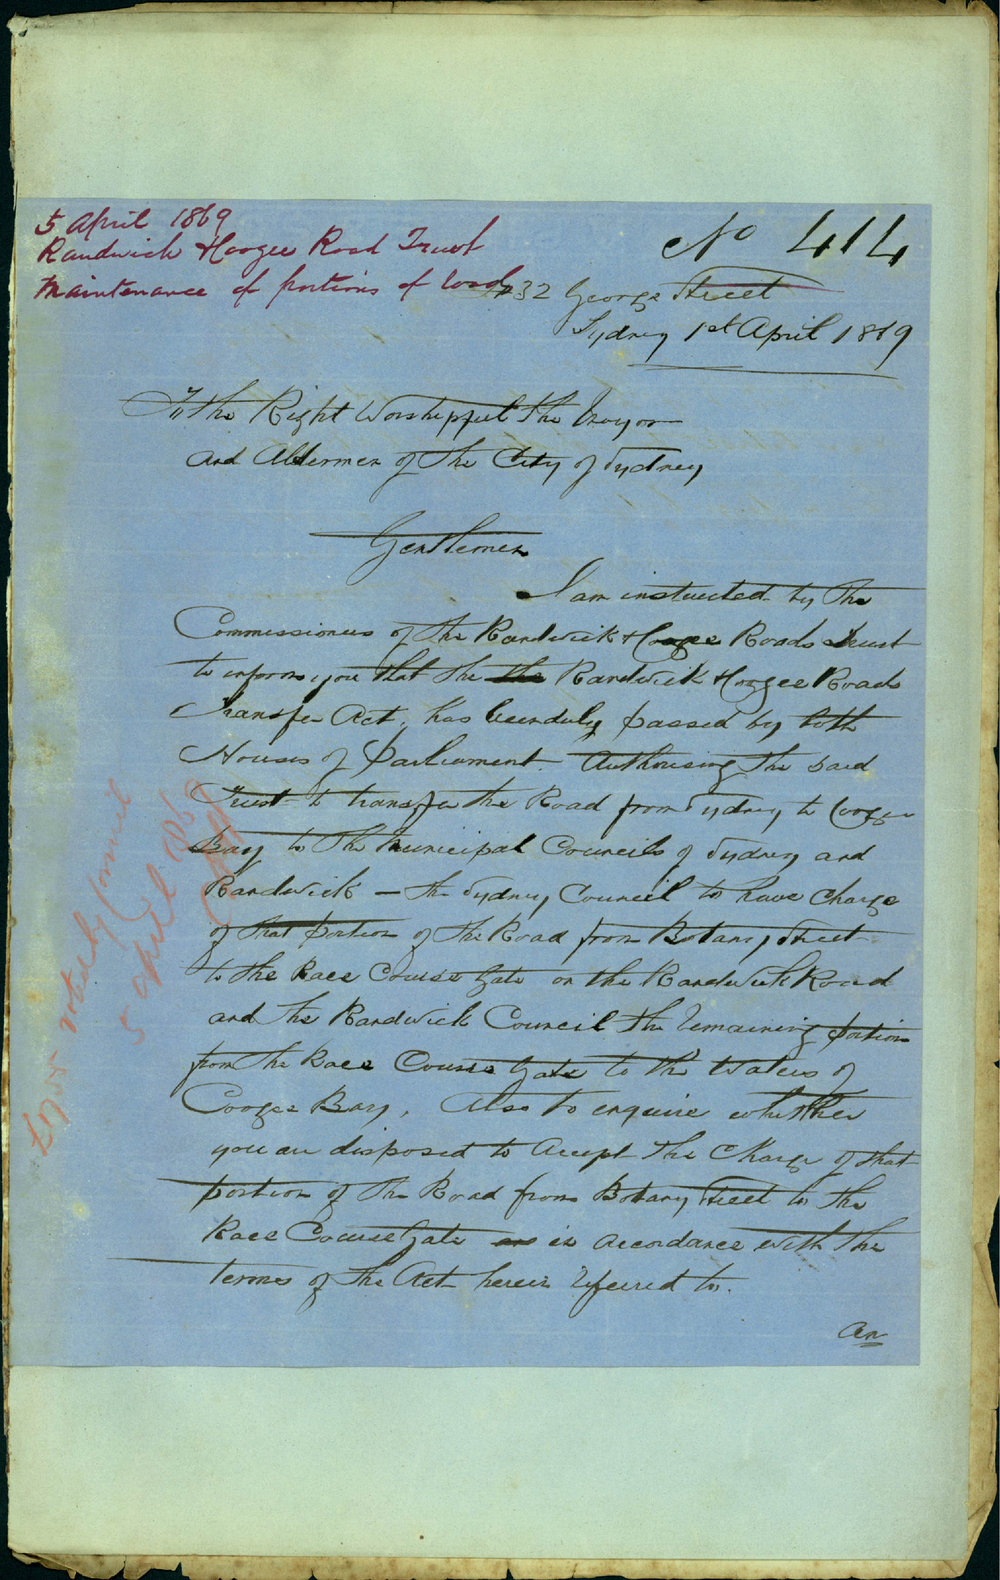 5 April 1869
Randwick & Coogee Road Trust
Maintenance of portions of road
No 414
432 George Street
Sydney 1st April 1869
To the Right Worshippful the Mayor
and Aldermen of the City of Sydney
Gentlemen
I am instructed by the
Commissioners of the Randwick & Coogee Roads Trust
to inform you that the the Randwick & Coogee Roads
Transfer Act, has been duly passed by both
Houses of Parliament. Authorising the said
Trust to transfer the Road from Sydney to Coogee
Bay to the Municipal Councils of Sydney and
Randwick — the Sydney Council to have charge
of that portion of the Road from Botany Street
to the Race Course Gate on the Randwick Road
and the Randwick Council the remaining portion
from the Race Course Gate to the Waters of
Coogee Bay, Also to enquire whether
you are disposed to Accept the Charge of that
portion of the Road from Botany Street to the
Race Course Gate in accordance with the
terms of the Act herein referred to.
An
Council
5 April 1869